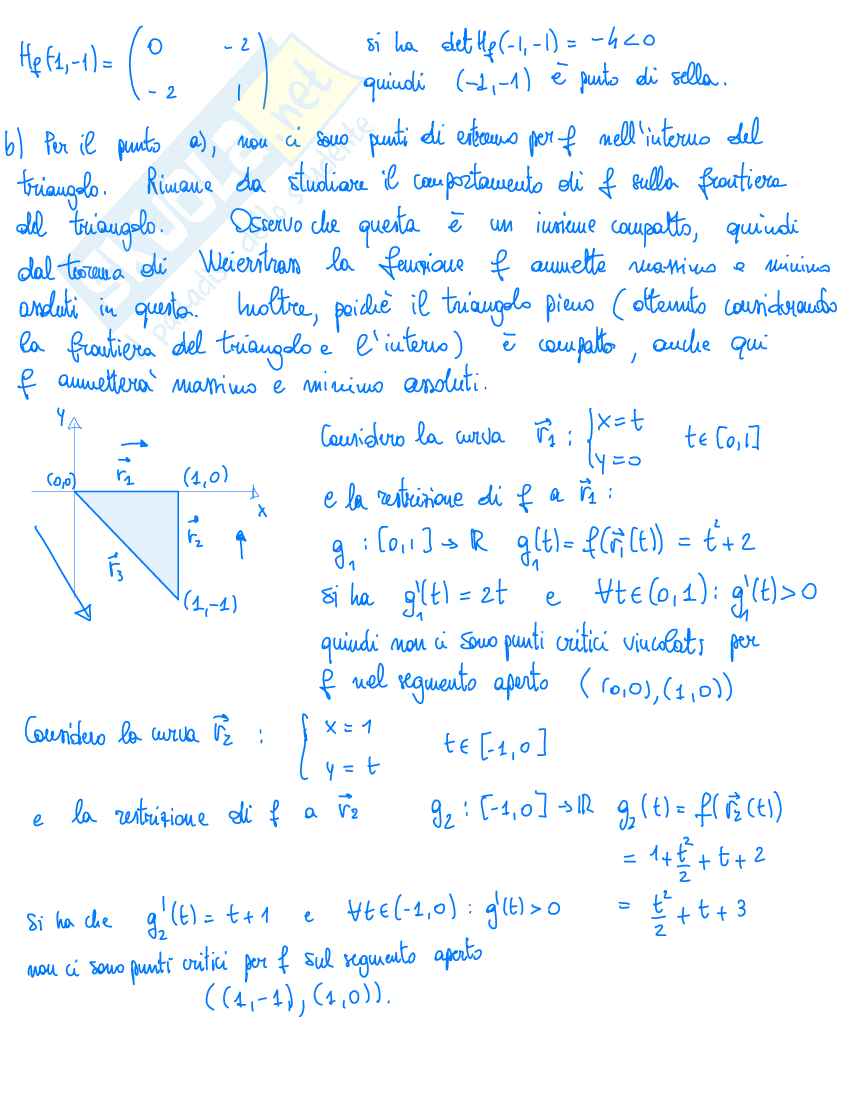 Hf(-1,-1) = ( 0 -2 ; -2 1 ) si ha det Hf(-1,-1) = -4<0
quindi (-1,-1) è punto di sella.
b) Per il punto a), non ci sono punti di estremo per f nell'interno del
triangolo. Rimane da studiare il comportamento di f sulla frontiera
del triangolo. Osservo che questa è un insieme compatto, quindi
dal teorema di Weierstrass la funzione f ammette massimo e minimo
assoluti in questa. Inoltre, poichè il triangolo pieno (ottenuto considerando
la frontiera del triangolo e l'interno) è compatto, anche qui
f ammetterà massimo e minimo assoluti.
y
(0,0) r⃗₁ (1,0)
x
r⃗₂
r⃗₃
(1,-1)
Considero la curva r⃗₁ : { x=t y=0 t∈[0,1]
e la restrizione di f a r⃗₁ :
g₁ : [0,1] → ℝ g₁(t) = f(r⃗₁(t)) = t²+2
Si ha g₁'(t) = 2t e ∀t∈(0,1) : g₁'(t)>0
quindi non ci sono punti critici vincolati per
f nel segmento aperto ((0,0),(1,0))
Considero la curva r⃗₂ : { x=1 y=t t∈[-1,0]
e la restrizione di f a r⃗₂ g₂ : [-1,0] → ℝ g₂(t) = f(r⃗₂(t))
= 1+t²/2 + t + 2
= t²/2 + t + 3
Si ha che g₂'(t) = t+1 e ∀t∈(-1,0) : g'(t)>0
non ci sono punti critici per f sul segmento aperto
((1,-1),(1,0)).